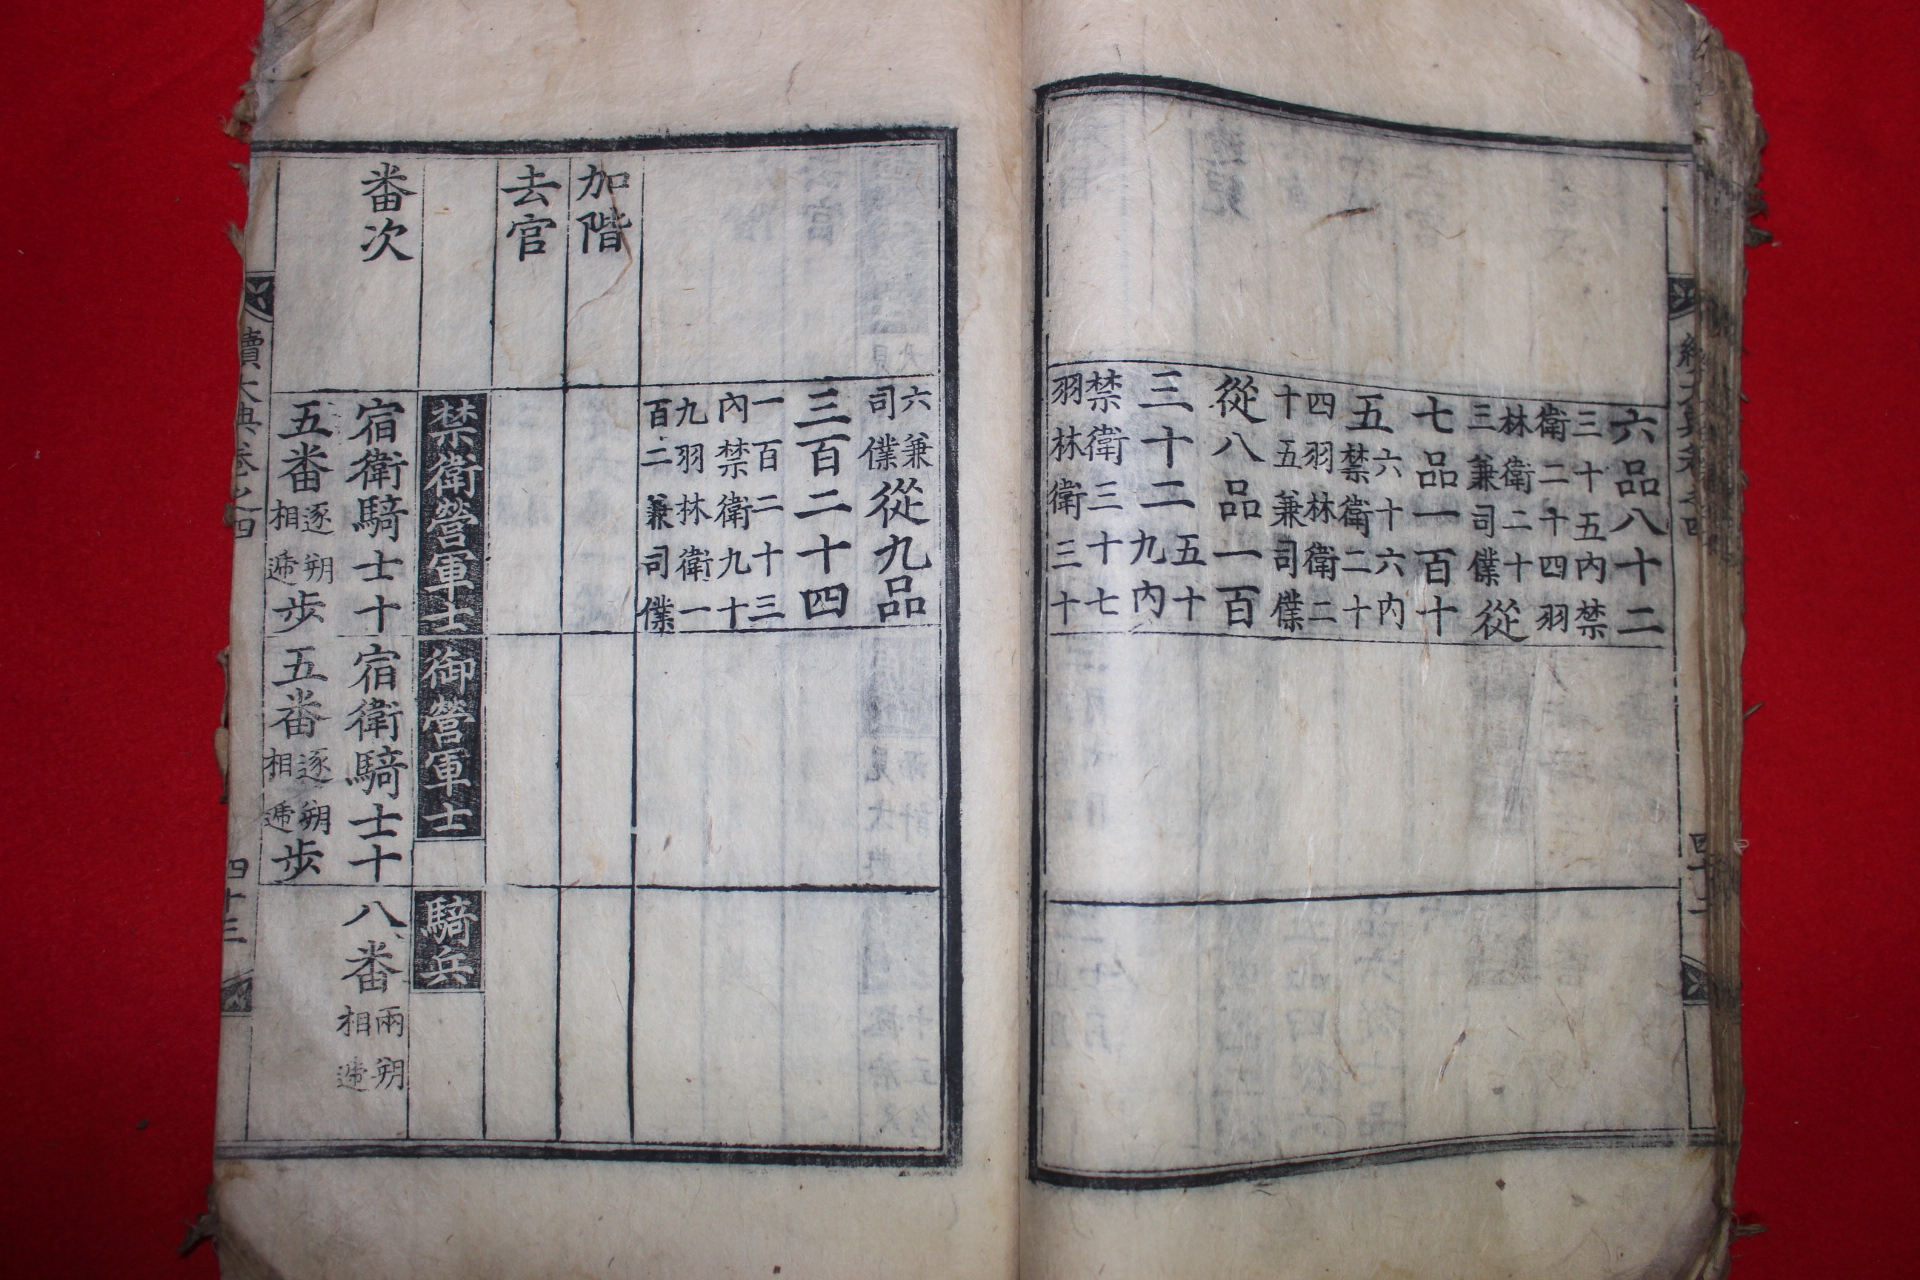 續大典卷之四 四十二
六品八十二
三十五內禁
衛二十四羽
林衛二十
三兼司僕
從
七品一百十
五
六十六內
禁衛二十
四羽林衛二
十五兼司僕
從八品一百
三十二
五十
九內
禁衛三十七
羽林衛三十
六兼
司僕
從九品
三百二十四
一百二十三
內禁衛九十
九羽林衛一
百二兼司僕
加階
去官
禁衛營軍士 御營軍士 騎兵
番次
宿衛騎士十
五番
逐朔
相遞
步
宿衛騎士十
五番
逐朔
相遞
步
八番
兩朔
相遞
續大典卷之四 四十三